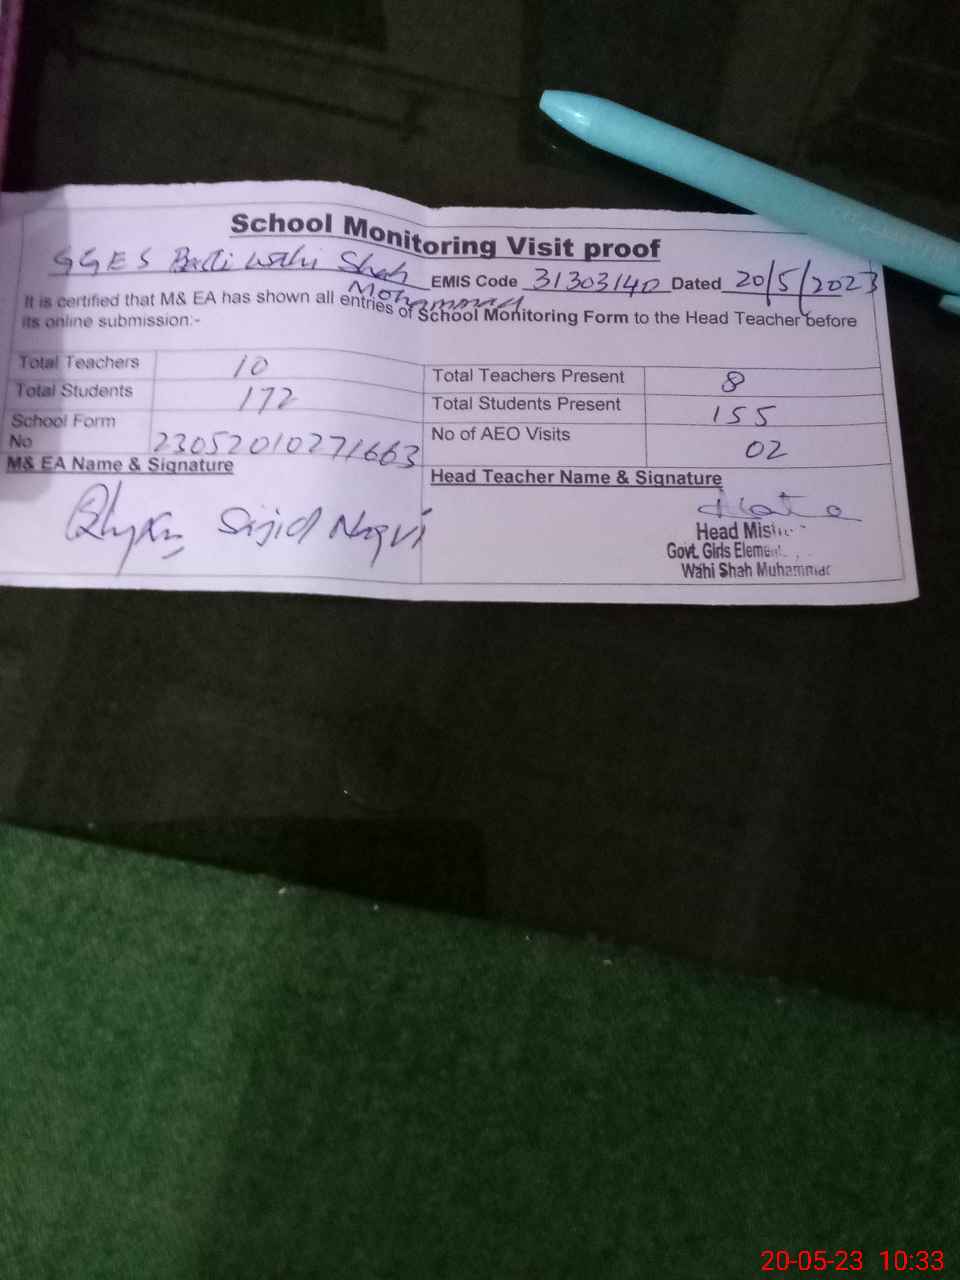 School Monitoring Visit proof
GGES Basti Wahi Shah Mohammad EMIS Code 31303140 Dated 20/5/2023
It is certified that M& EA has shown all entries of School Monitoring Form to the Head Teacher before
its online submission:-
Total Teachers 10 Total Teachers Present 8
Total Students 172 Total Students Present 155
School Form No 23052010271663 No of AEO Visits 02
M& EA Name & Signature Head Teacher Name & Signature
Sajid Naqvi
Head
Govt. Girls
Wahi Shah Muhammad
20-05-23 10:33